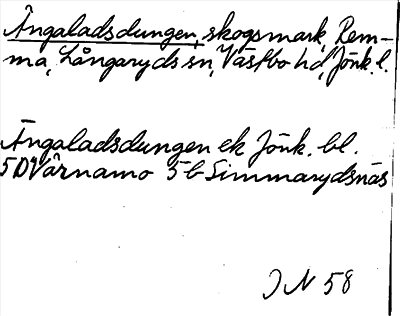 Ängaladsdungen, skogsmark, Rem-
ma, Långaryds sn, Västbo hd, Jönk. l.
Ängaladsdungen ek Jönk. bl.
5D Värnamo 5b Simmarydsnäs
J N 58